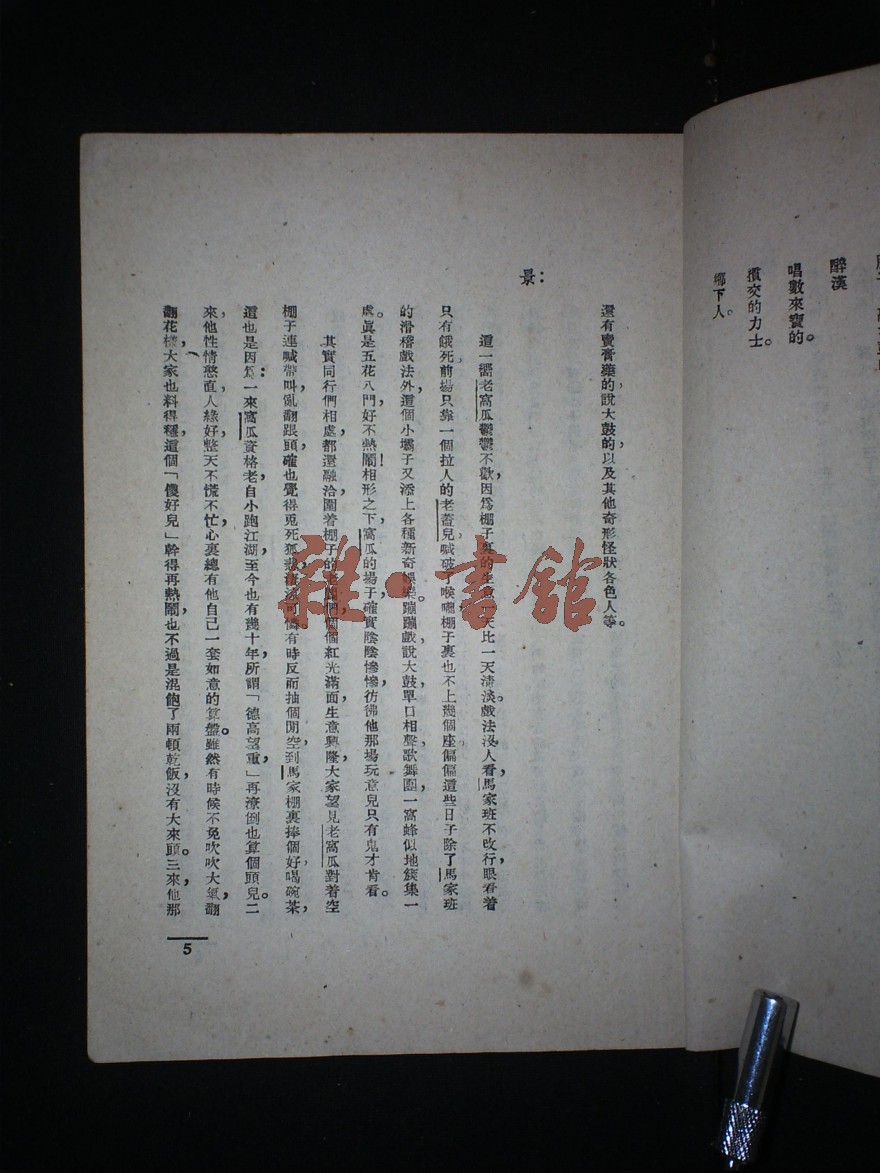 醉漢
唱數來寶的。
摜交的力士。
鄉下人。
還有賣膏藥的,說大鼓的,以及其他奇形怪狀各色人等。
景:
這一晌老窩瓜鬱鬱不歡,因爲棚子裏的生意一天比一天清淡。戲法沒人看,馬家班不改行,眼看着
只有餓死,前場只靠一個拉人的老蓋兒,喊破了喉嚨,棚子裏也不上幾個座。偏偏這些日子,除了馬家班
的滑稽戲法外,這個小壩子又添上各種新奇娛樂。蹦蹦戲,說大鼓,單口相聲,歌舞團,一窩蜂似地簇集一
處。眞是五花八門,好不熱鬧!相形之下,窩瓜的場子確實陰陰慘慘,彷彿他那場玩意兒只有鬼才肯看。
其實同行們相處,都還融洽,圍着棚子的老闆們個個紅光滿面,生意興隆,大家望見老窩瓜對着空
棚子連喊帶叫,亂翻跟頭,確也覺得兎死狐悲,凄涼可憐。有時反而抽個閒空,到馬家棚裏捧個好,喝碗茶,
這也是因爲:一來窩瓜資格老,自小跑江湖,至今也有幾十年,所謂「德高望重」,再潦倒也算個頭兒。二
來,他性情憨直,人緣好,整天不慌不忙,心裏總有他自己一套如意的算盤。雖然有時候不免吹吹大氣,翻
翻花樣,大家也料得穩,這個「傻好兒」幹得再熱鬧,也不過是混飽了兩頓乾飯,沒有大來頭。三來,他那
5
雜·書館